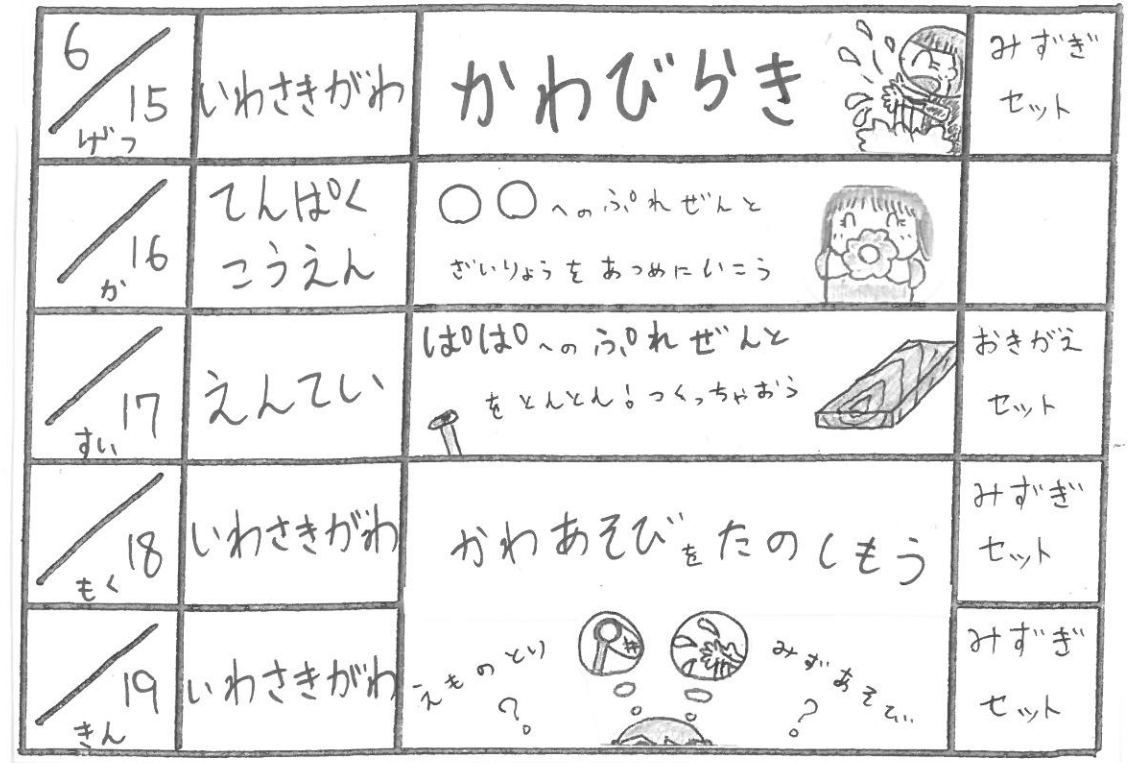 6/15
げつ
いわさきがわ
かわびらき
みずぎ
セット
/16
か
てんぱく
こうえん
○○へのぷれぜんと
ざいりょうをあつめにいこう
/17
すい
えんてい
ぱぱへのぷれぜんと
をとんとん!つくっちゃおう
おきがえ
セット
/18
もく
いわさきがわ
かわあそびをたのしもう
みずぎ
セット
/19
きん
いわさきがわ
えものとり
?
みずあそび
?
みずぎ
セット